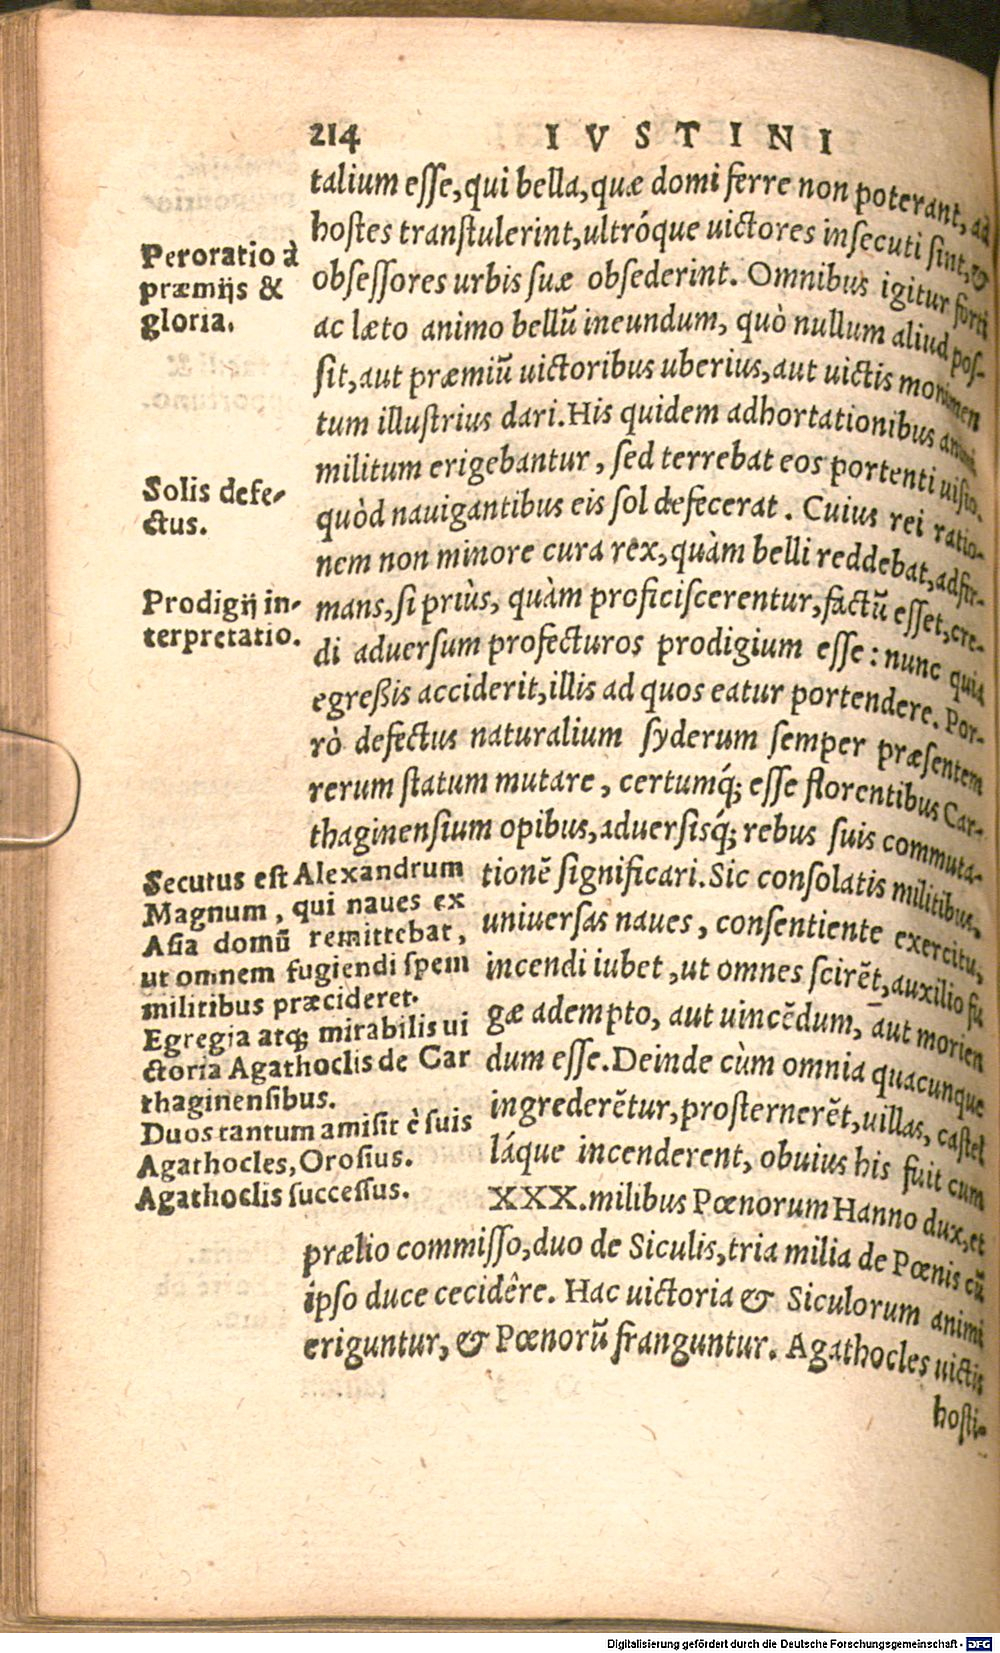 214 IVSTINI
talium esse, qui bella, quæ domi ferre non poterant, ad
hostes transtulerint, ultróque uictores insecuti sint, &
obsessores urbis suæ obsederint. Omnibus igitur forti
ac læto animo bellũ ineundum, quò nullum aliud pos-
sit, aut præmiũ uictoribus uberius, aut uictis monimen
tum illustrius dari. His quidem adhortationibus animi
militum erigebantur, sed terrebat eos portenti uisio,
quòd nauigantibus eis sol defecerat. Cuius rei ratio-
nem non minore cura rex, quàm belli reddebat, adfir-
mans, si priùs, quàm proficiscerentur, factũ esset, cre-
di aduersum profecturos prodigium esse: nunc quia
egreßis acciderit, illis ad quos eatur portendere. Por-
rò defectus naturalium syderum semper præsentem
rerum statum mutare, certumq́; esse florentibus Car-
thaginensium opibus, aduersisq́; rebus suis commuta-
tionẽ significari. Sic consolatis militibus,
uniuersas naues, consentiente exercitu,
incendi iubet, ut omnes scirẽt, auxilio fu
gæ adempto, aut uincẽdum, aut morien
dum esse. Deinde cùm omnia quacunque
ingrederẽtur, prosternerẽt, uillas, castel
láque incenderent, obuius his fuit cum
XXX. milibus Pœnorum Hanno dux, et
prælio commisso, duo de Siculis, tria milia de Pœnis cũ
ipso duce cecidêre. Hac uictoria & Siculorum animi
eriguntur, & Pœnorũ franguntur. Agathocles uictis
hosti-
Peroratio à
præmijs &
gloria.
Solis defe-
ctus.
Prodigij in-
terpretatio.
Secutus est Alexandrum
Magnum, qui naues ex
Asia domũ remittebat,
ut omnem fugiendi spem
militibus præcideret.
Egregia atq; mirabilis ui
ctoria Agathoclis de Car
thaginensibus.
Duos tantum amisit è suis
Agathocles, Orosius.
Agathoclis successus.
Digitalisierung gefördert durch die Deutsche Forschungsgemeinschaft - DFG